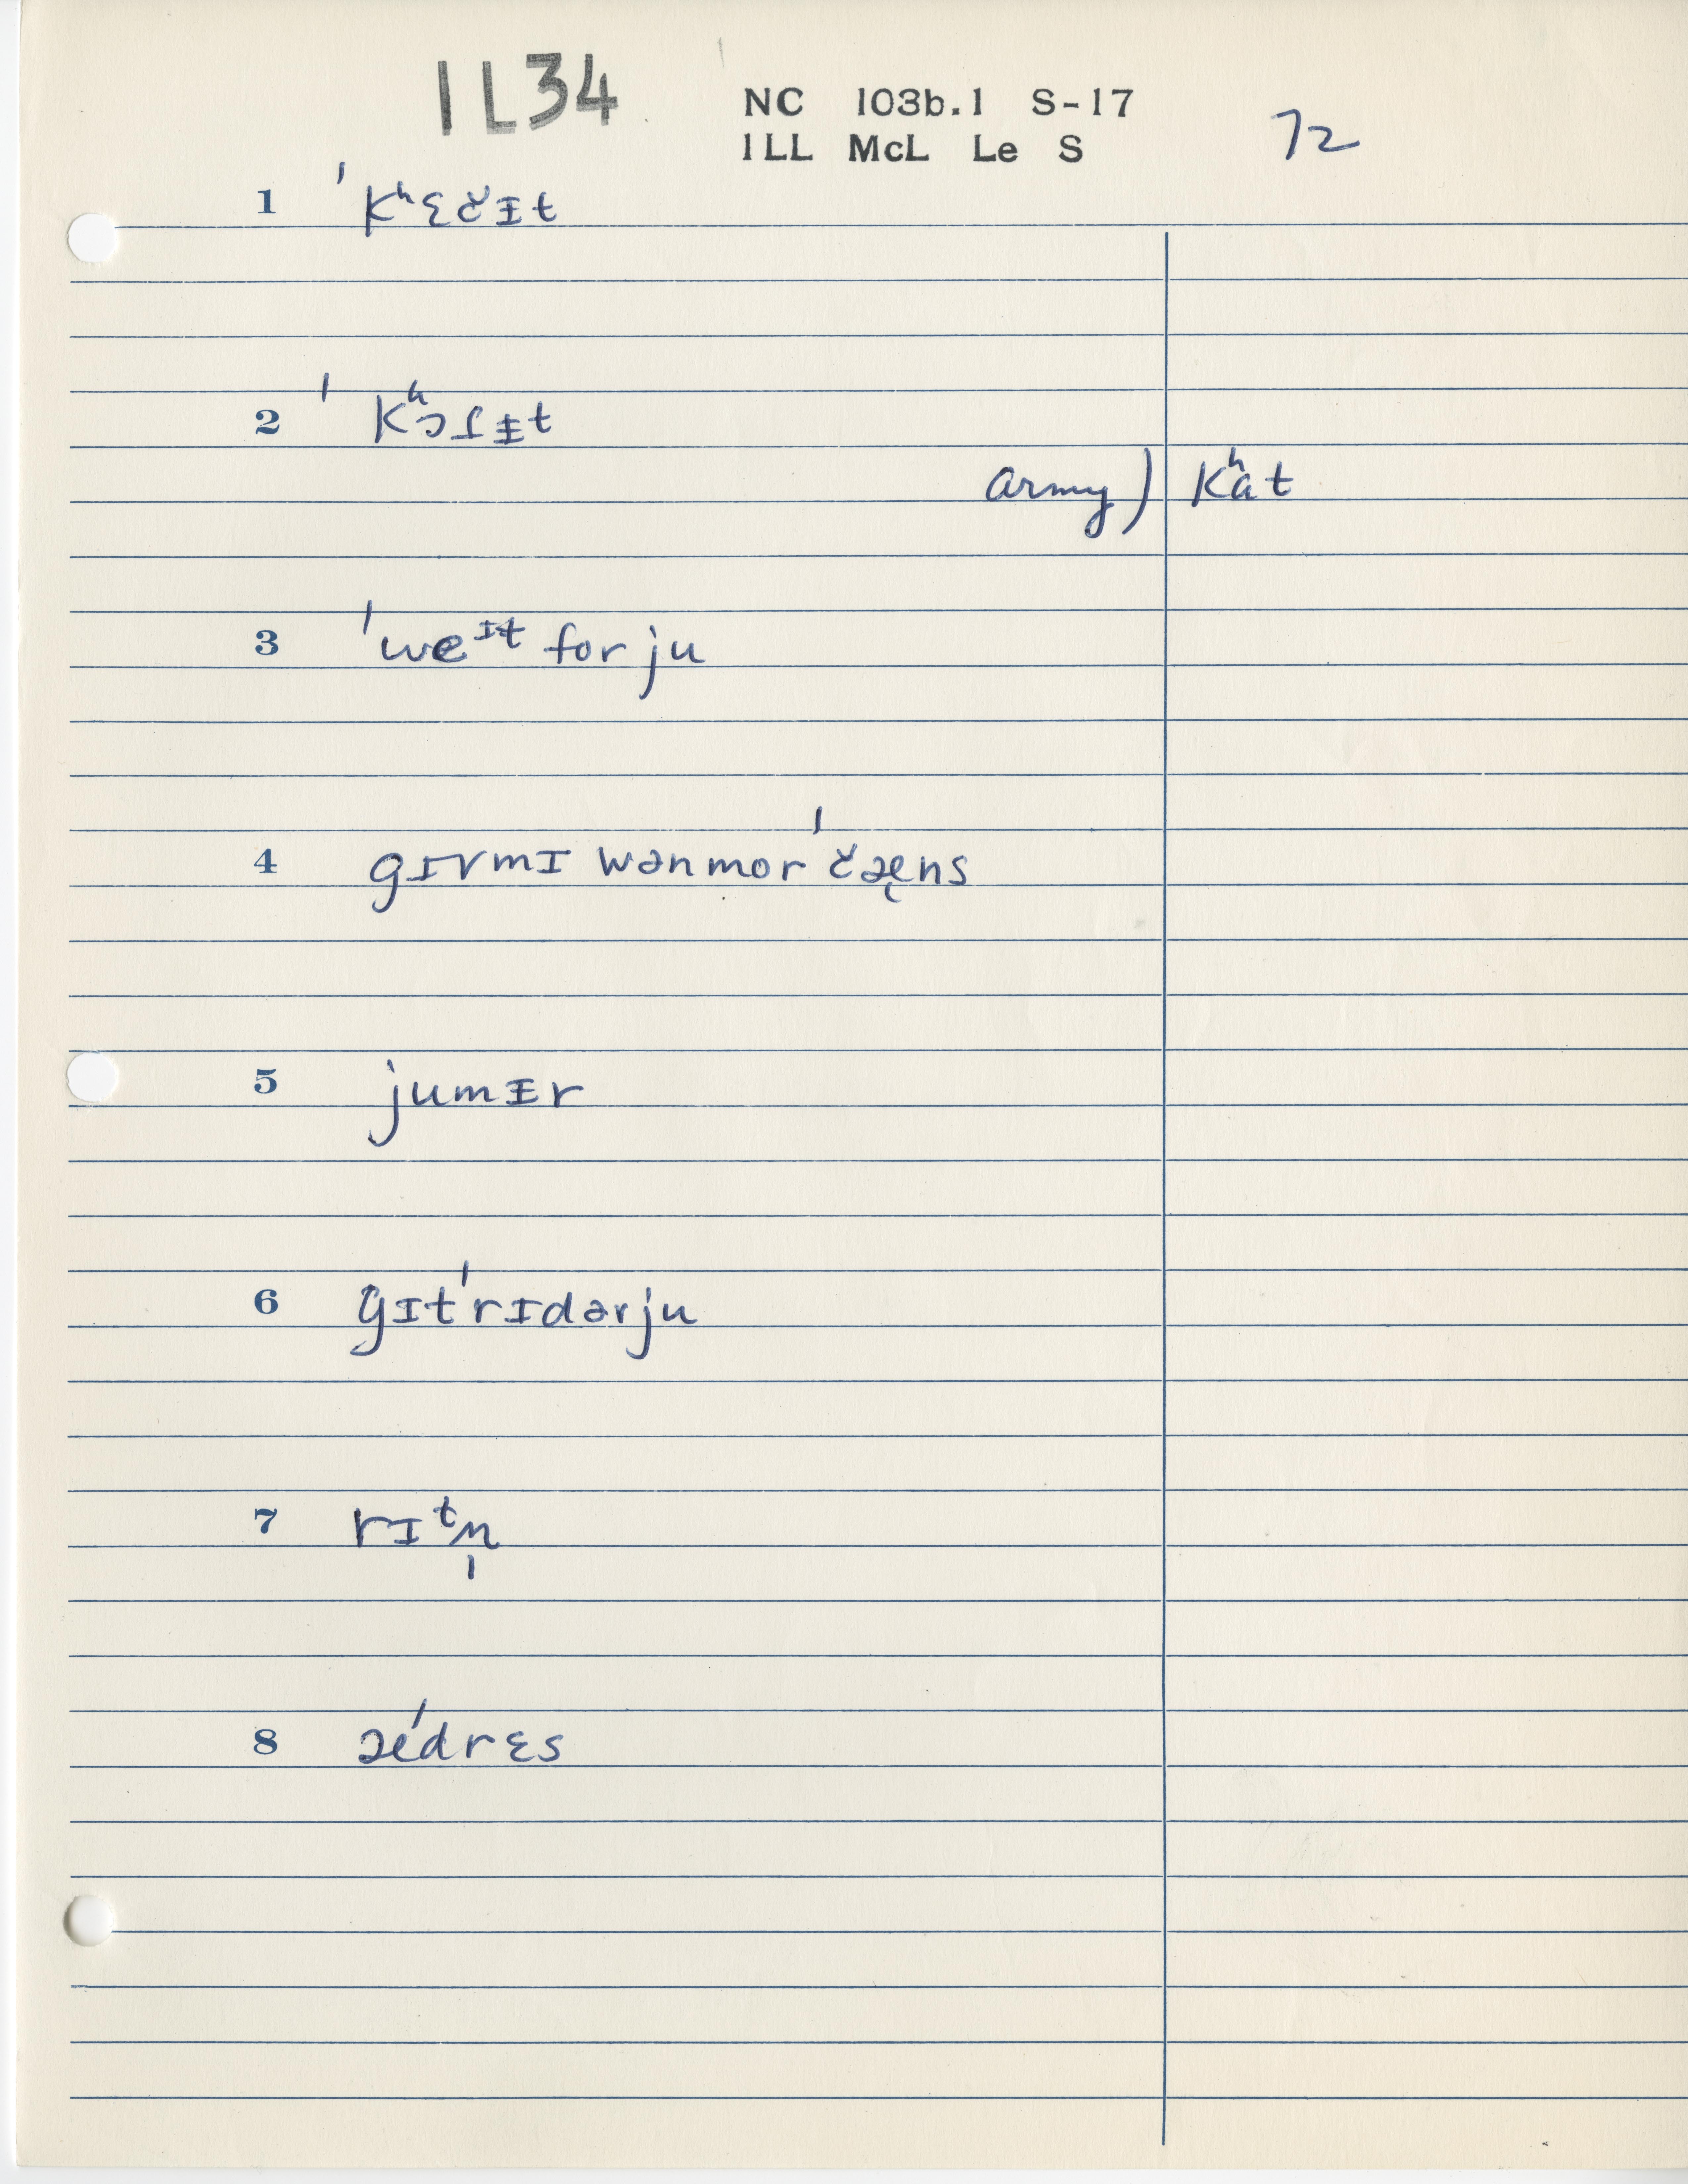 IL34
NC 103b.1 S-17
ILL McL Le S
72
1 ˈkʰɛč̌ɪt
2 ˈkʰɔʃɨt
army) kʰat
3 ˈweᶦᵗ for ju
4 gɪvmɪ wənmor ˈčæ̨ns
5 jumɨr
6 gɪtˈrɪdərju
7 rɪᵗn̩
8 æˈdrɛs